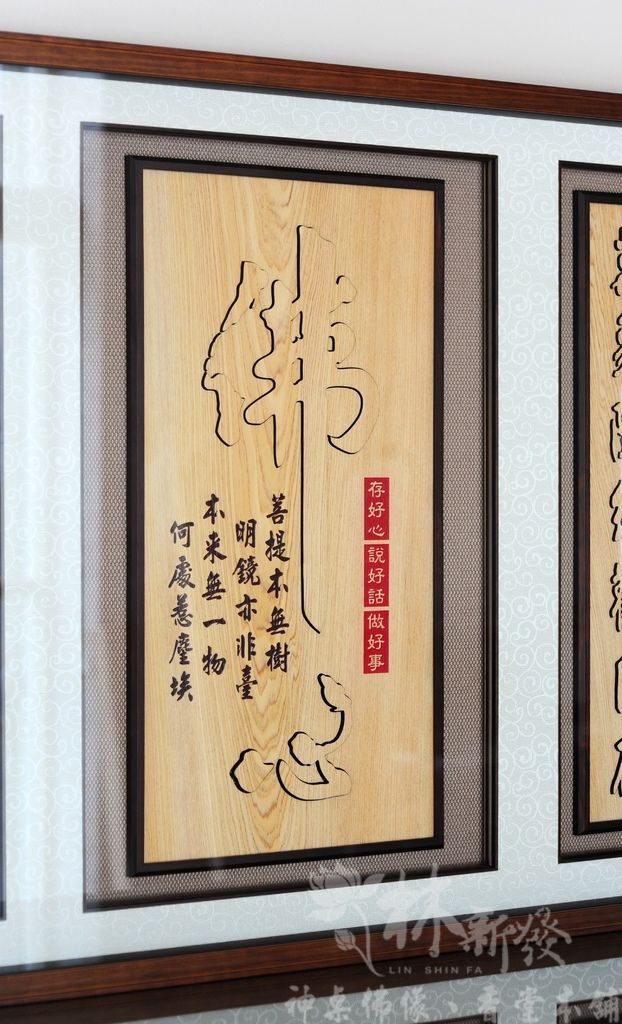 佛心
存好心
說好話
做好事
菩提本無樹
明鏡亦非臺
本来無一物
何處惹塵埃
林新發
LIN SHIN FA
神桌佛像、香堂本舖